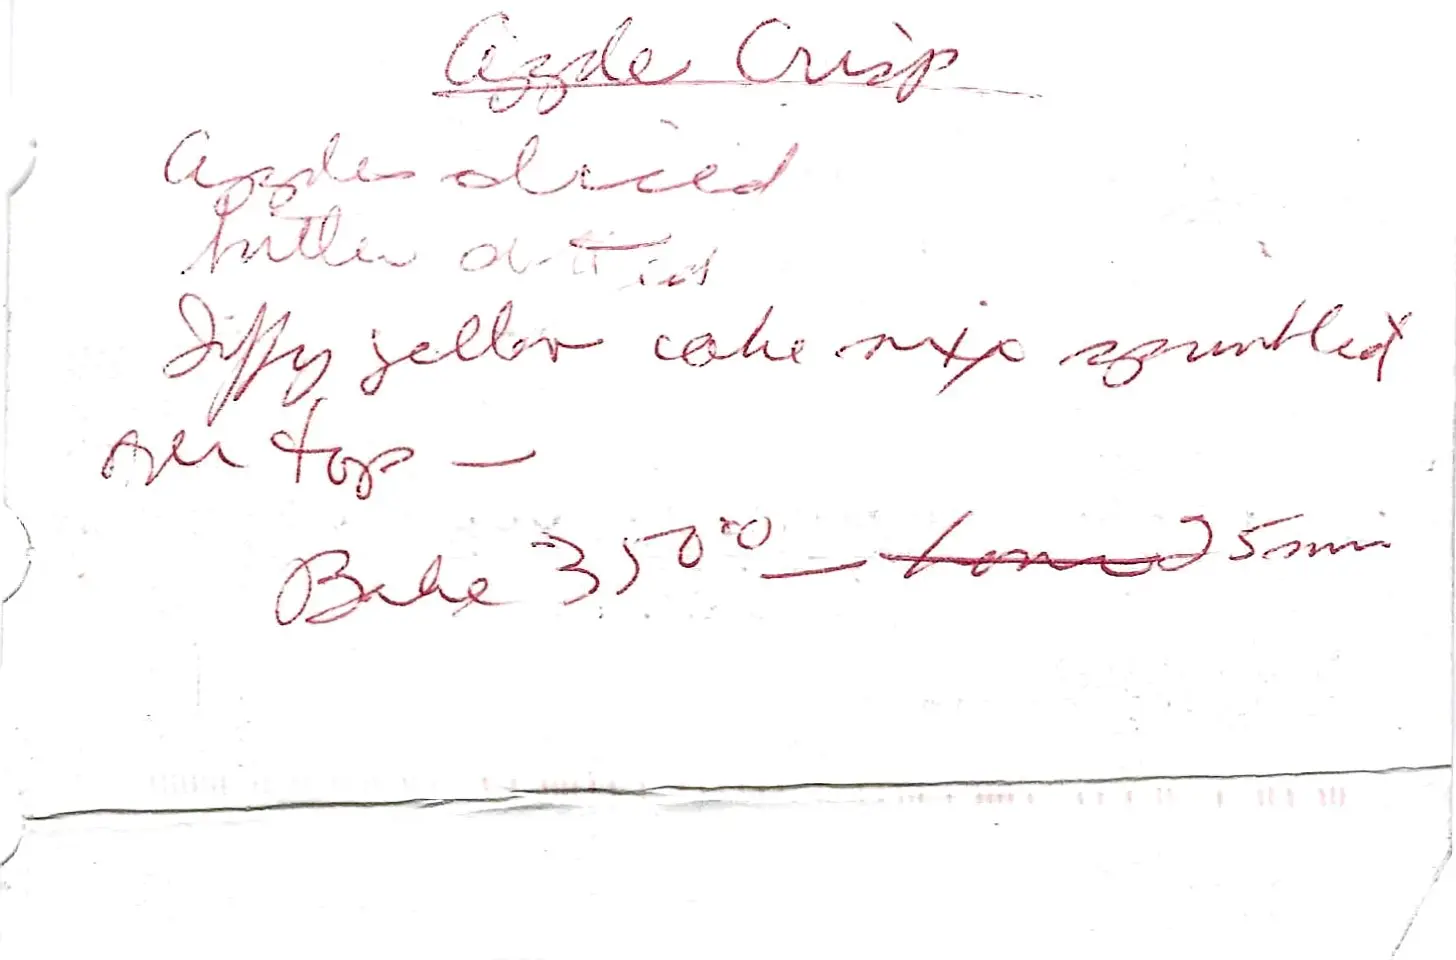 Apple Crisp
Apples sliced
butter dotted
Jiffy yellow cake mix sprinkled
over top —
Bake 350° — 25 min